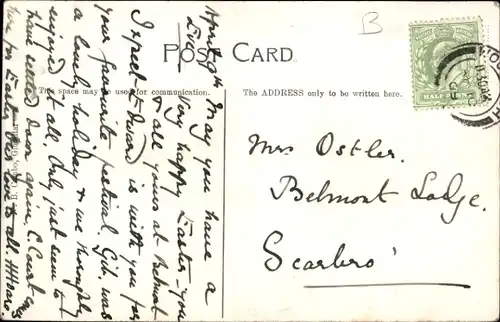 B
POST CARD.
This space may be used for communication.
The ADDRESS only to be written here.
HALF PENNY
Mrs Ostler.
Belmont Lodge.
Scarbro'
April 9th May you have a
very happy Easter - you
& all yours at Belmont
I expect Edward is with you for
your favourite festival. Gib. was
a lovely holiday & we thoroughly
enjoyed it all. Only just seem to
have settled down again. C. Court
for Easter. Our love to all.